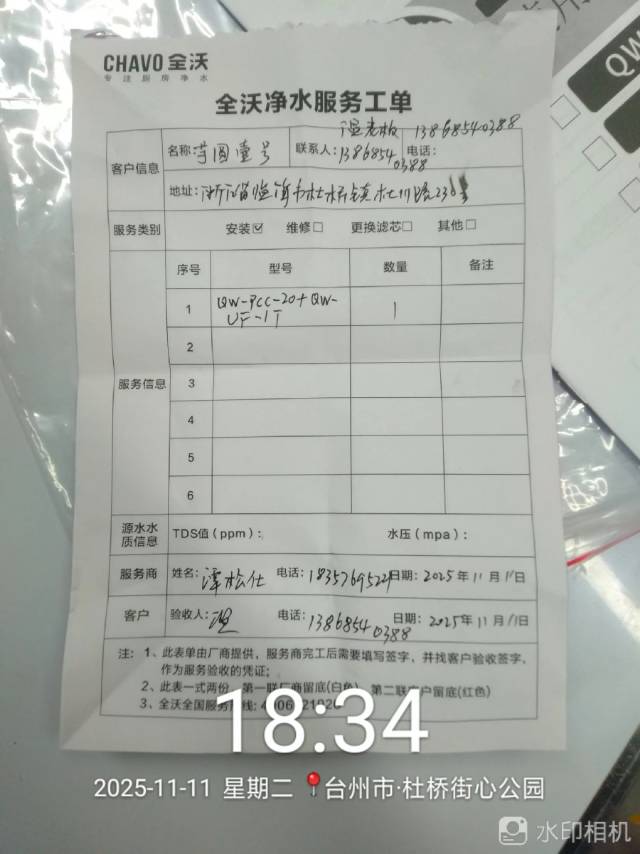 CHAVO 全沃
专注厨房净水
全沃净水服务工单
客户信息 名称 芋圆壹号 联系人: 温老板 电话: 13868540388
13868540388
地址: 浙江省临海市杜桥镇杜川路236号
服务类别 安装☑ 维修□ 更换滤芯□ 其他□
服务信息 序号 型号 数量 备注
1 QW-PCC-20+QW-UF-1T 1
2
3
4
5
6
源水水质信息 TDS值(ppm): 水压(mpa):
服务商 姓名: 松仕 电话: 日期: 2025年11月11日
客户 验收人: 温 电话: 13868540388 日期: 2025年11月11日
注: 1、此表单由厂商提供,服务商完工后需要填写签字,并找客户验收签字,
作为服务验收的凭证;
2、此表一式两份,第一联厂商留底(白色),第二联客户留底(红色)
3、全沃全国服务热线:
18:34
2025-11-11 星期二 台州市·杜桥街心公园
水印相机
QW